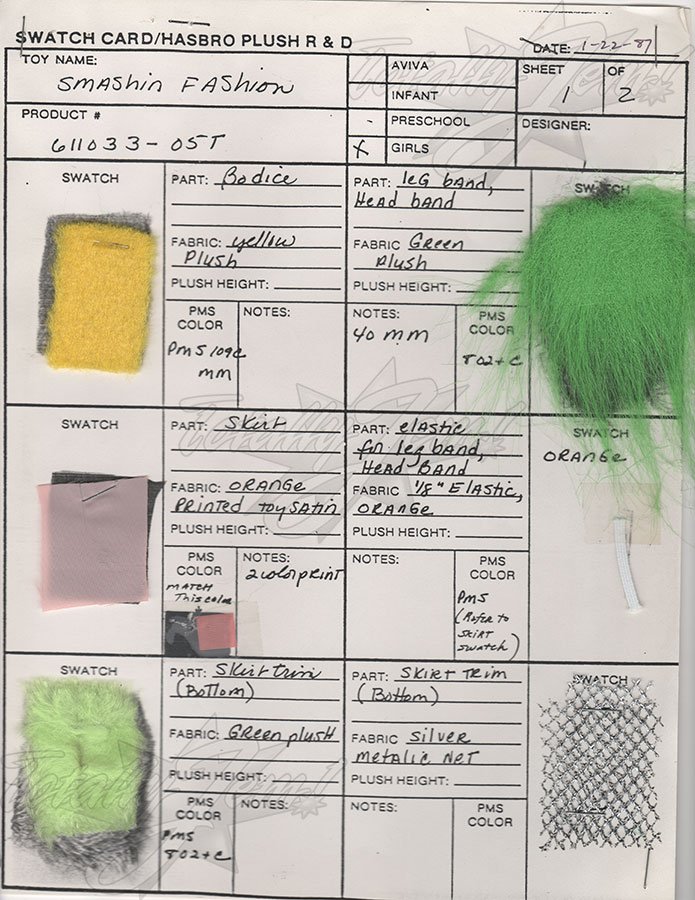 SWATCH CARD/HASBRO PLUSH R & D
DATE: 1-22-87
TOY NAME:
Smashin Fashion
AVIVA
INFANT
PRESCHOOL
X GIRLS
SHEET 1 OF 2
PRODUCT #
611033-05T
DESIGNER:
SWATCH
PART: Bodice
FABRIC: yellow
Plush
PLUSH HEIGHT:
PMS
COLOR
PMS 109C
mm
NOTES:
PART: leg band,
Head band
FABRIC Green
Plush
PLUSH HEIGHT:
NOTES:
40 mm
PMS
COLOR
802+C
SWATCH
SWATCH
PART: Skirt
FABRIC: ORANGE
PRINTED TOY SATIN
PLUSH HEIGHT:
PMS
COLOR
MATCH
This color
NOTES:
2 color print
PART: elastic
for leg band,
Head Band
FABRIC 1/8" Elastic,
ORANGE
PLUSH HEIGHT:
NOTES:
PMS
COLOR
PMS
(Refer to
SKIRT
swatch)
SWATCH
ORANGE
SWATCH
PART: Skirt trim
(Bottom)
FABRIC: Green plush
PLUSH HEIGHT:
PMS
COLOR
PMS
802+C
NOTES:
PART: SKIRT TRIM
(Bottom)
FABRIC SILVER
METALIC NET
PLUSH HEIGHT:
NOTES:
PMS
COLOR
SWATCH